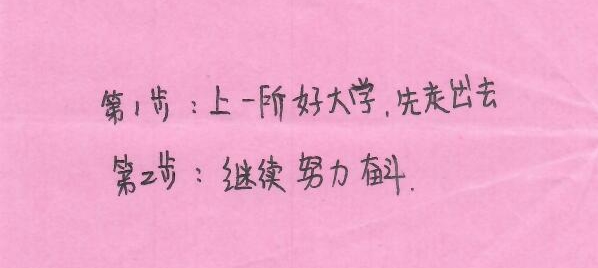 第1步：上一所好大学,先走出去
第2步：继续努力奋斗.